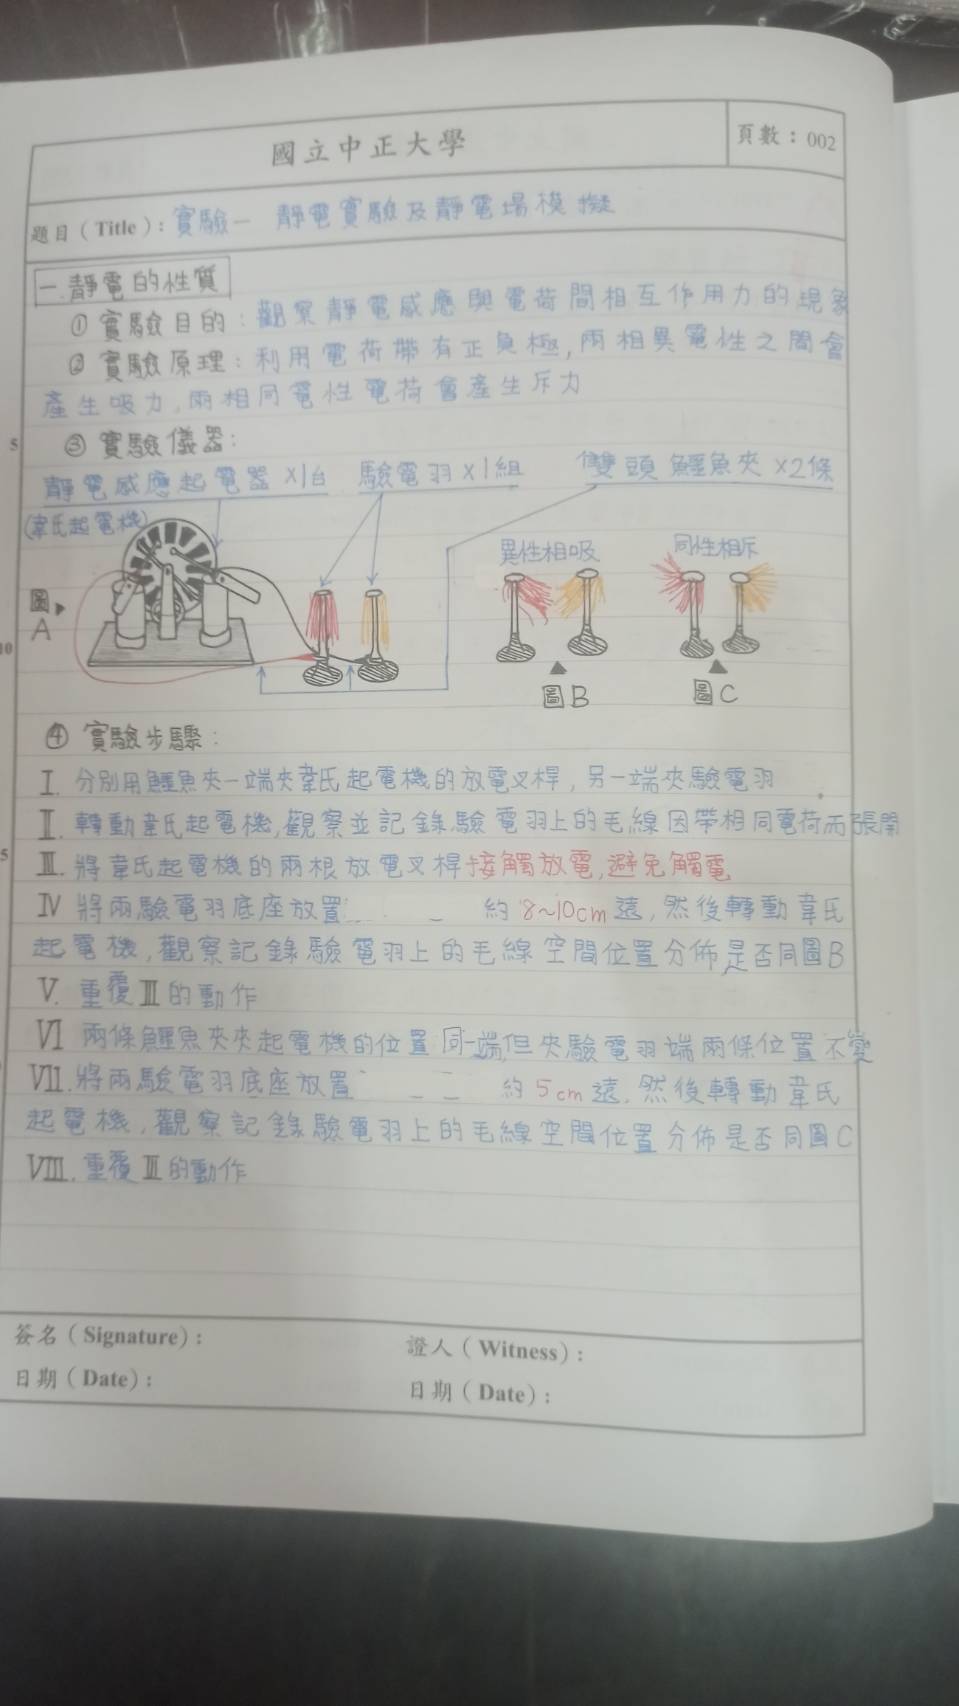 國立中正大學
頁數：002
題目（Title）：實驗一 靜電實驗及靜電場模擬
一.靜電的性質
① 實驗目的：觀察靜電感應與電荷間相互作用力的現象
② 實驗原理：利用電荷帶有正負極，兩相異電性之間會
產生吸力，兩相同電性電荷會產生斥力
5
③ 實驗儀器：
靜電感應起電器 x1台 驗電羽 x1組 雙頭鱷魚夾 x2條
(韋氏起電機)
異性相吸 同性相斥
圖A
10
圖B 圖C
④ 實驗步驟：
I. 分別用鱷魚夾一端夾韋氏起電機的放電叉桿，另一端夾驗電羽
II. 轉動韋氏起電機，觀察並記錄驗電羽上的毛線因帶相同電荷而張開
5
III. 將韋氏起電機的兩根放電叉桿接觸放電，避免觸電
IV 將兩驗電羽底座放置 約 8~10cm 遠，然後轉動韋氏
起電機，觀察記錄驗電羽上的毛線空間位置分佈是否同圖B
V. 重覆III的動作
VI 兩條鱷魚夾夾起電機的位置同一端，但夾驗電羽端兩條位置不變
VII. 將兩驗電羽底座放置 約 5cm 遠，然後轉動韋氏
起電機，觀察記錄驗電羽上的毛線空間位置分佈是否同圖C
VIII. 重覆III的動作
簽名（Signature）：
證人（Witness）：
日期（Date）：
日期（Date）：